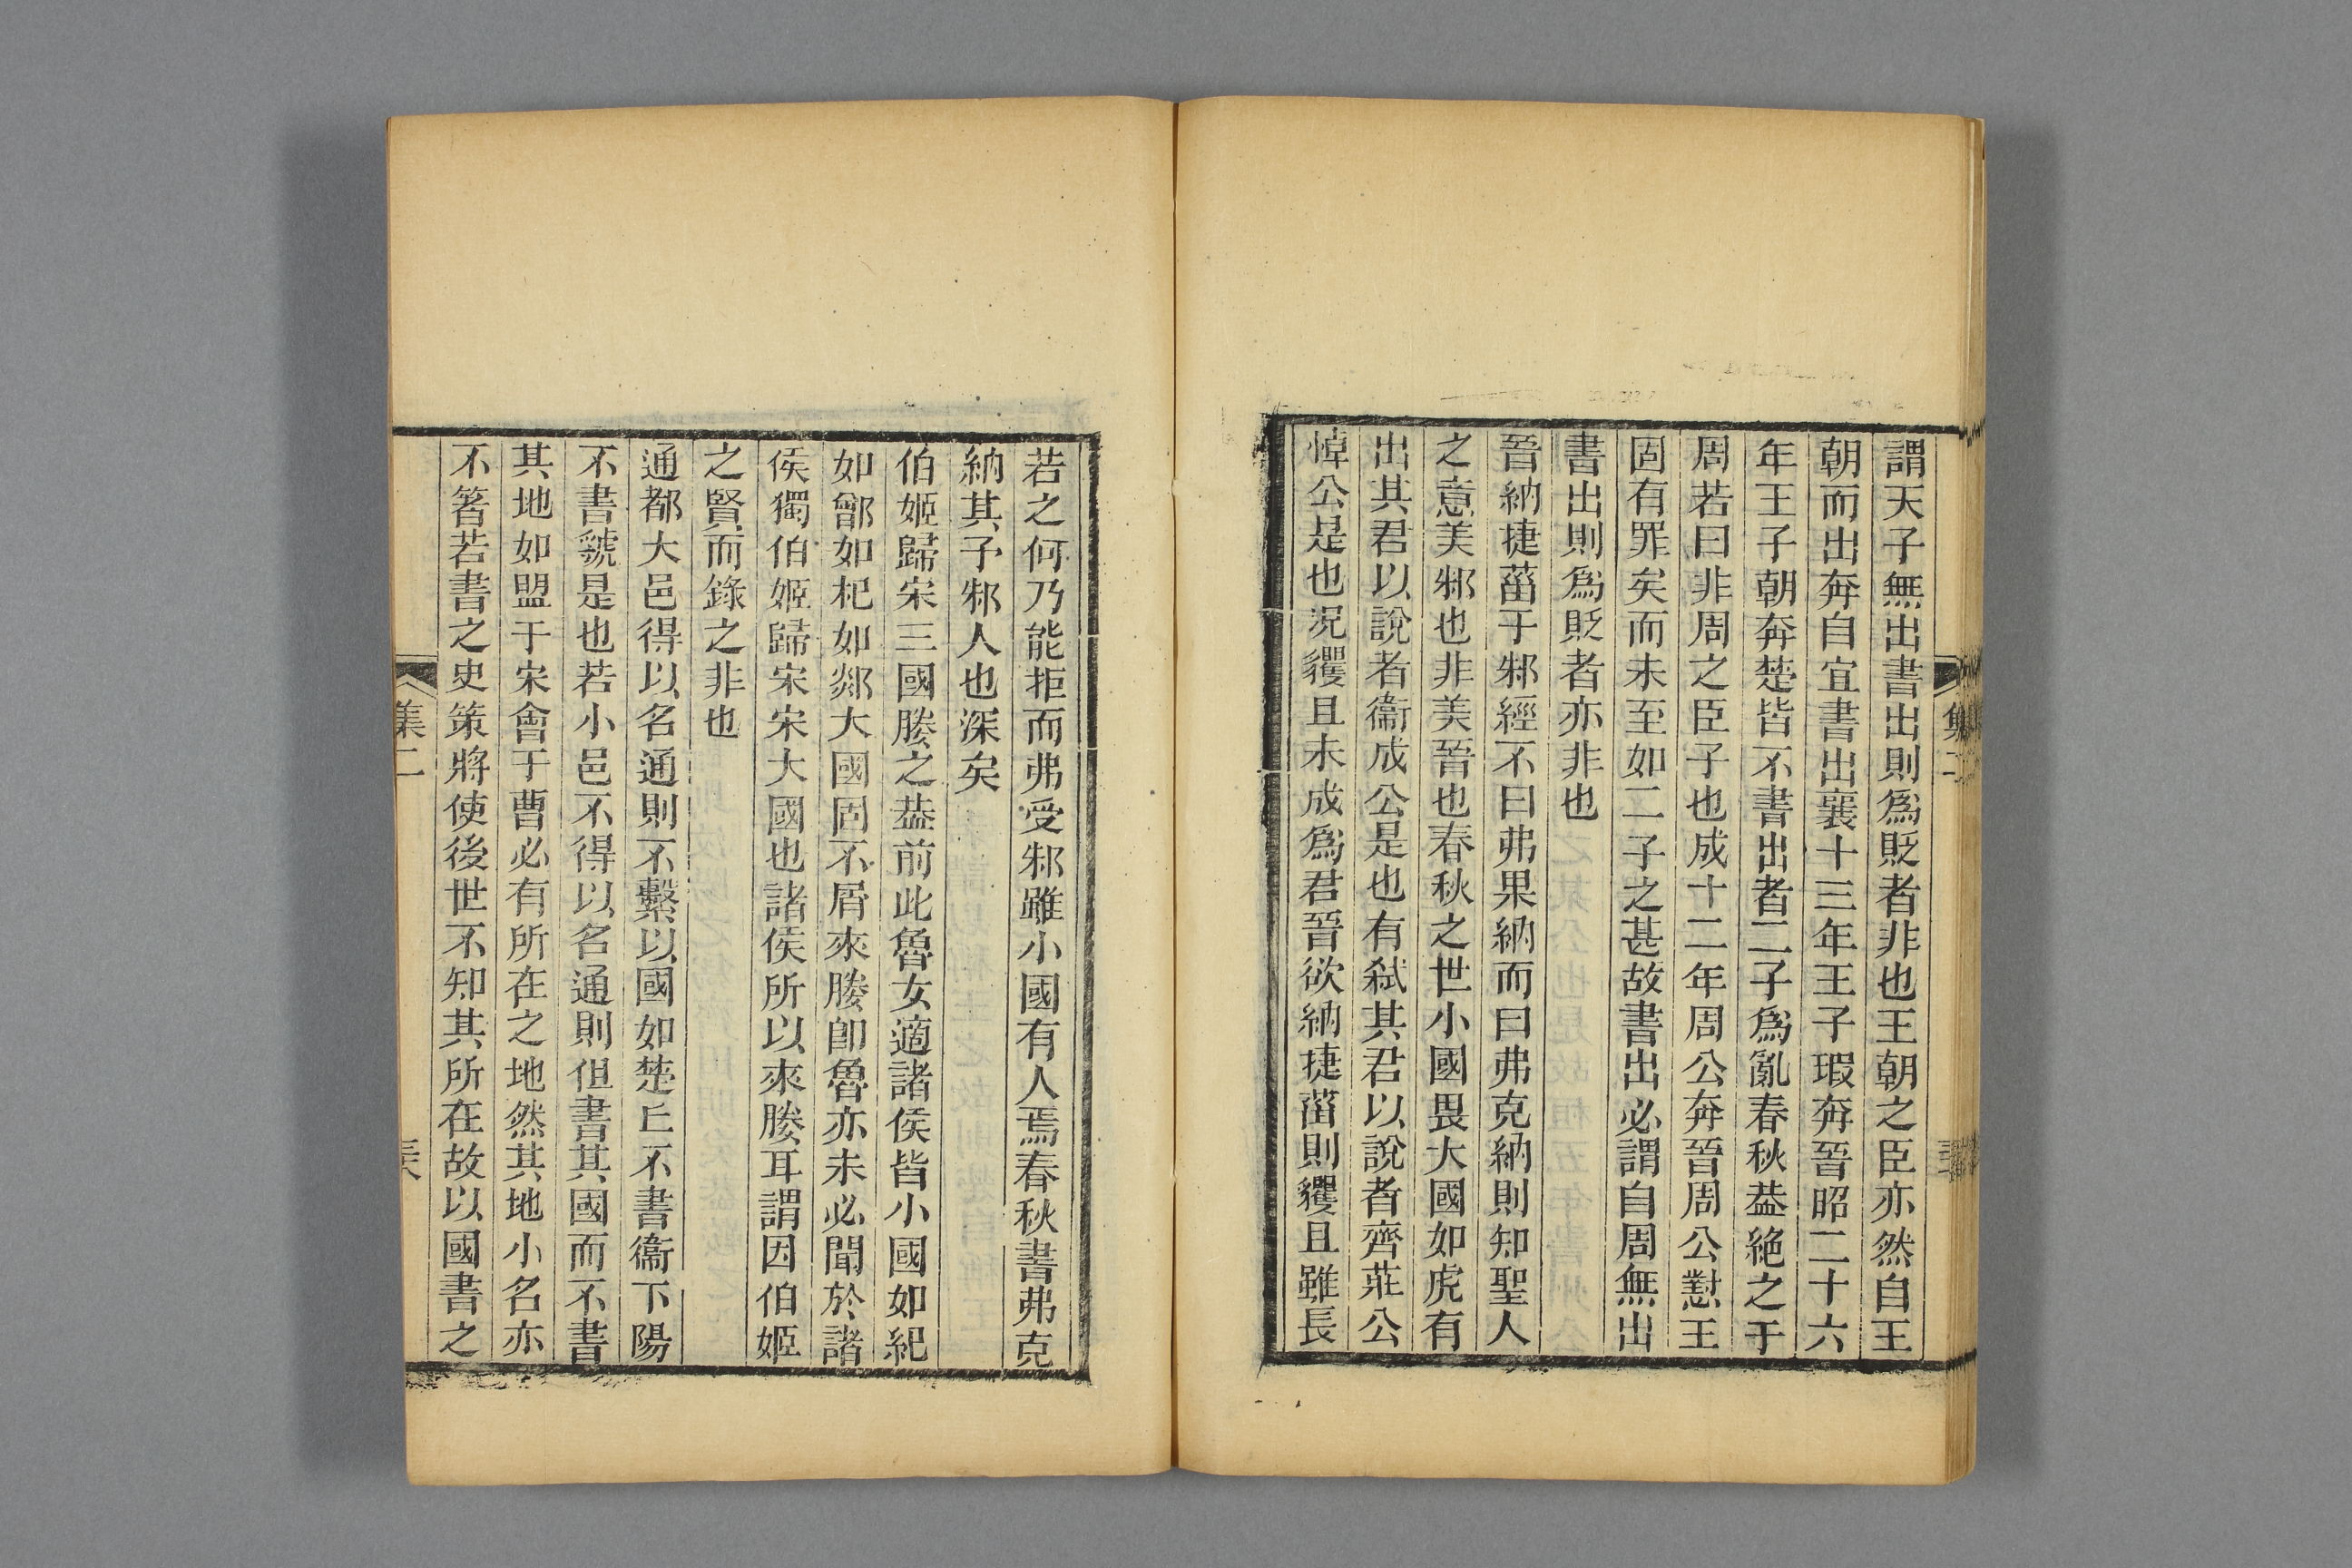 謂天子無出書出則爲貶者非也王朝之臣亦然自王
朝而出奔自宜書出襄十三年王子瑕奔晉昭二十六
年王子朝奔楚皆不書出者二子爲亂春秋葢絶之于
周若曰非周之臣子也成十二年周公奔晉周公懟王
固有罪矣而未至如二子之甚故書出必謂自周無出
書出則爲貶者亦非也
晉納捷菑于邾經不曰弗果納而曰弗克納則知聖人
之意美邾也非美晉也春秋之世小國畏大國如虎有
出其君以說者衞成公是也有弑其君以說者齊莊公
悼公是也況貜且未成爲君晉欲納捷菑則貜且雖長
若之何乃能拒而弗受邾雖小國有人焉春秋書弗克
納其予邾人也深矣
伯姬歸宋三國媵之葢前此魯女適諸侯皆小國如紀
如鄫如杞如郯大國固不屑來媵卽魯亦未必聞於諸
侯獨伯姬歸宋宋大國也諸侯所以來媵耳謂因伯姬
之賢而錄之非也
通都大邑得以名通則不繫以國如楚丘不書衞下陽
不書虢是也若小邑不得以名通則但書其國而不書
其地如盟于宋會于曹必有所在之地然其地小名亦
不著若書之史策將使後世不知其所在故以國書之
集二